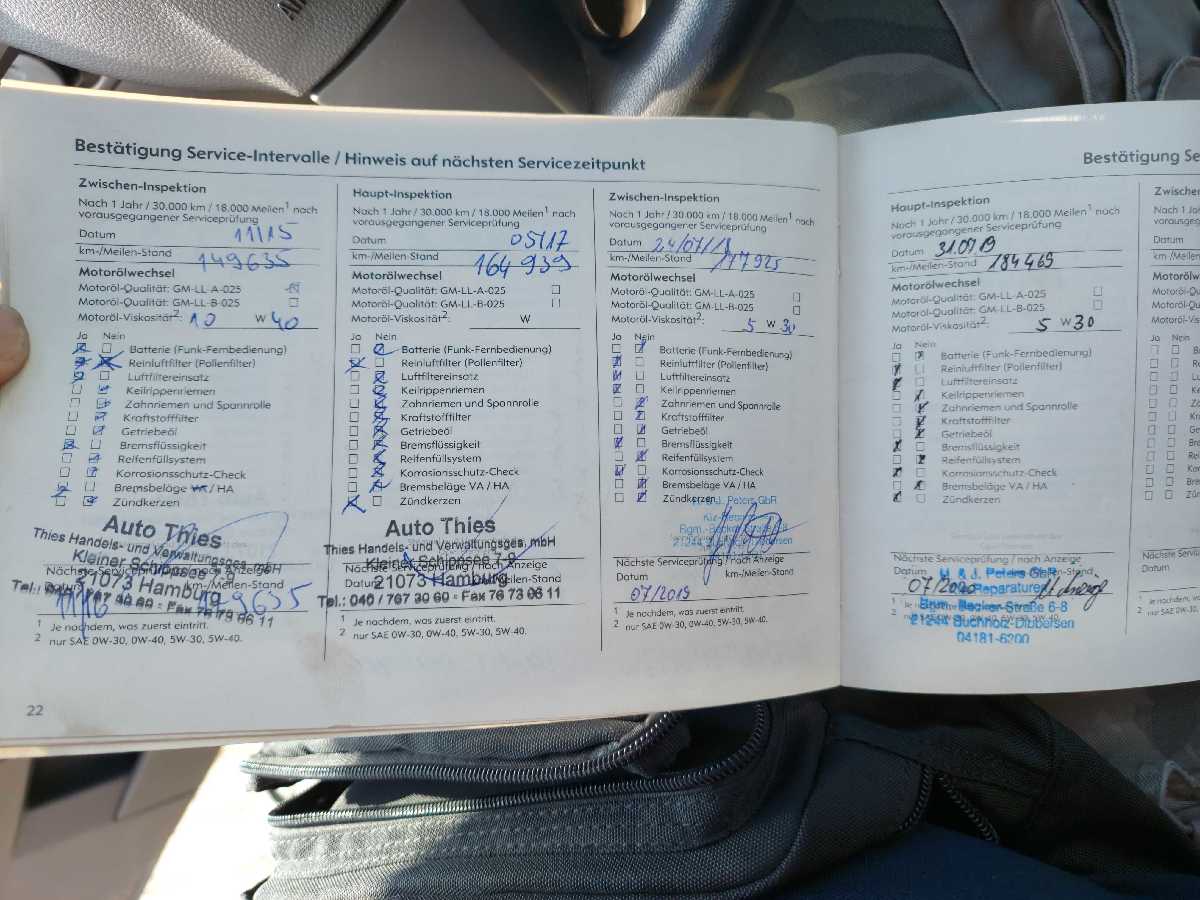 Bestätigung Service-Intervalle / Hinweis auf nächsten Servicezeitpunkt
Zwischen-Inspektion
Nach 1 Jahr / 30.000 km / 18.000 Meilen¹ nach
vorausgegangener Serviceprüfung
Datum 11/15
km-/Meilen-Stand 149635
Motorölwechsel
Motoröl-Qualität: GM-LL-A-025
Motoröl-Qualität: GM-LL-B-025
Motoröl-Viskosität²: 10 W 40
Ja Nein
Batterie (Funk-Fernbedienung)
Reinluftfilter (Pollenfilter)
Luftfiltereinsatz
Keilrippenriemen
Zahnriemen und Spannrolle
Kraftstofffilter
Getriebeöl
Bremsflüssigkeit
Reifenfüllsystem
Korrosionsschutz-Check
Bremsbeläge VA / HA
Zündkerzen
Auto Thies
Thies Handels- und Verwaltungsges. mbH
Kleiner Schippsee 7-9
21073 Hamburg
Tel.: 040 / 767 30 60 - Fax 76 73 06 11
Datum km-/Meilen-Stand
11/16 179635
¹ Je nachdem, was zuerst eintritt.
² nur SAE 0W-30, 0W-40, 5W-30, 5W-40.
22
Haupt-Inspektion
Nach 1 Jahr / 30.000 km / 18.000 Meilen¹ nach
vorausgegangener Serviceprüfung
Datum 05/17
km-/Meilen-Stand 164939
Motorölwechsel
Motoröl-Qualität: GM-LL-A-025
Motoröl-Qualität: GM-LL-B-025
Motoröl-Viskosität²: W
Ja Nein
Batterie (Funk-Fernbedienung)
Reinluftfilter (Pollenfilter)
Luftfiltereinsatz
Keilrippenriemen
Zahnriemen und Spannrolle
Kraftstofffilter
Getriebeöl
Bremsflüssigkeit
Reifenfüllsystem
Korrosionsschutz-Check
Bremsbeläge VA / HA
Zündkerzen
Auto Thies
Thies Handels- und Verwaltungsges. mbH
Kleiner Schippsee 7-9
Nächste Serviceprüfung / nach Anzeige
21073 Hamburg
Datum km-/Meilen-Stand
Tel.: 040 / 767 30 60 - Fax 76 73 06 11
¹ Je nachdem, was zuerst eintritt.
² nur SAE 0W-30, 0W-40, 5W-30, 5W-40.
Zwischen-Inspektion
Nach 1 Jahr / 30.000 km / 18.000 Meilen¹ nach
vorausgegangener Serviceprüfung
Datum 24/07/18
km-/Meilen-Stand 177925
Motorölwechsel
Motoröl-Qualität: GM-LL-A-025
Motoröl-Qualität: GM-LL-B-025
Motoröl-Viskosität²: 5 W 30
Ja Nein
Batterie (Funk-Fernbedienung)
Reinluftfilter (Pollenfilter)
Luftfiltereinsatz
Keilrippenriemen
Zahnriemen und Spannrolle
Kraftstofffilter
Getriebeöl
Bremsflüssigkeit
Reifenfüllsystem
Korrosionsschutz-Check
Bremsbeläge VA / HA
Zündkerzen
J. Peters GbR
Nächste Serviceprüfung / nach Anzeige
Datum km-/Meilen-Stand
07/2019
¹ Je nachdem, was zuerst eintritt.
² nur SAE 0W-30, 0W-40, 5W-30, 5W-40.
Bestätigung Se
Haupt-Inspektion
Nach 1 Jahr / 30.000 km / 18.000 Meilen¹ nach
vorausgegangener Serviceprüfung
Datum 31.07.19
km-/Meilen-Stand 184469
Motorölwechsel
Motoröl-Qualität: GM-LL-A-025
Motoröl-Qualität: GM-LL-B-025
Motoröl-Viskosität²: 5 W 30
Ja Nein
Batterie (Funk-Fernbedienung)
Reinluftfilter (Pollenfilter)
Luftfiltereinsatz
Keilrippenriemen
Zahnriemen und Spannrolle
Kraftstofffilter
Getriebeöl
Bremsflüssigkeit
Reifenfüllsystem
Korrosionsschutz-Check
Bremsbeläge VA / HA
Zündkerzen
Nächste Serviceprüfung / nach Anzeige
Datum
J. Peters GbR
07/2020
¹ Je nachdem, was zuerst eintritt.
Becker-Straße 6-8
21244 Buchholz-Dibbersen
04181-6200
Zwischen
Nach 1 J
vorausgeg
Datum
km-/Meil
Motorölw
Motoröl-
Motoröl-
Motoröl-
Ja Nein
Nächste S
Datum